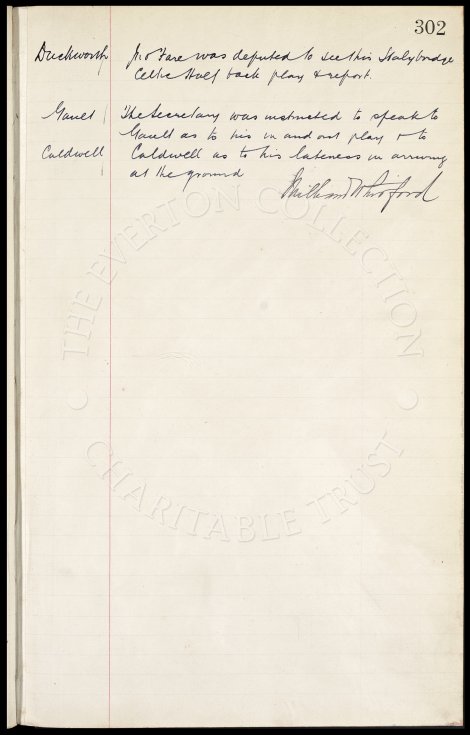 302
Duckworth Jno Fare was deputed to see this Stalybridge
Celtic Half back play & report.
Gault The Secretary was instructed to speak to
Gault as to his in and out play & to
Caldwell Caldwell as to his lateness in arriving
at the ground
William Whitford
THE EVERTON COLLECTION
CHARITABLE TRUST